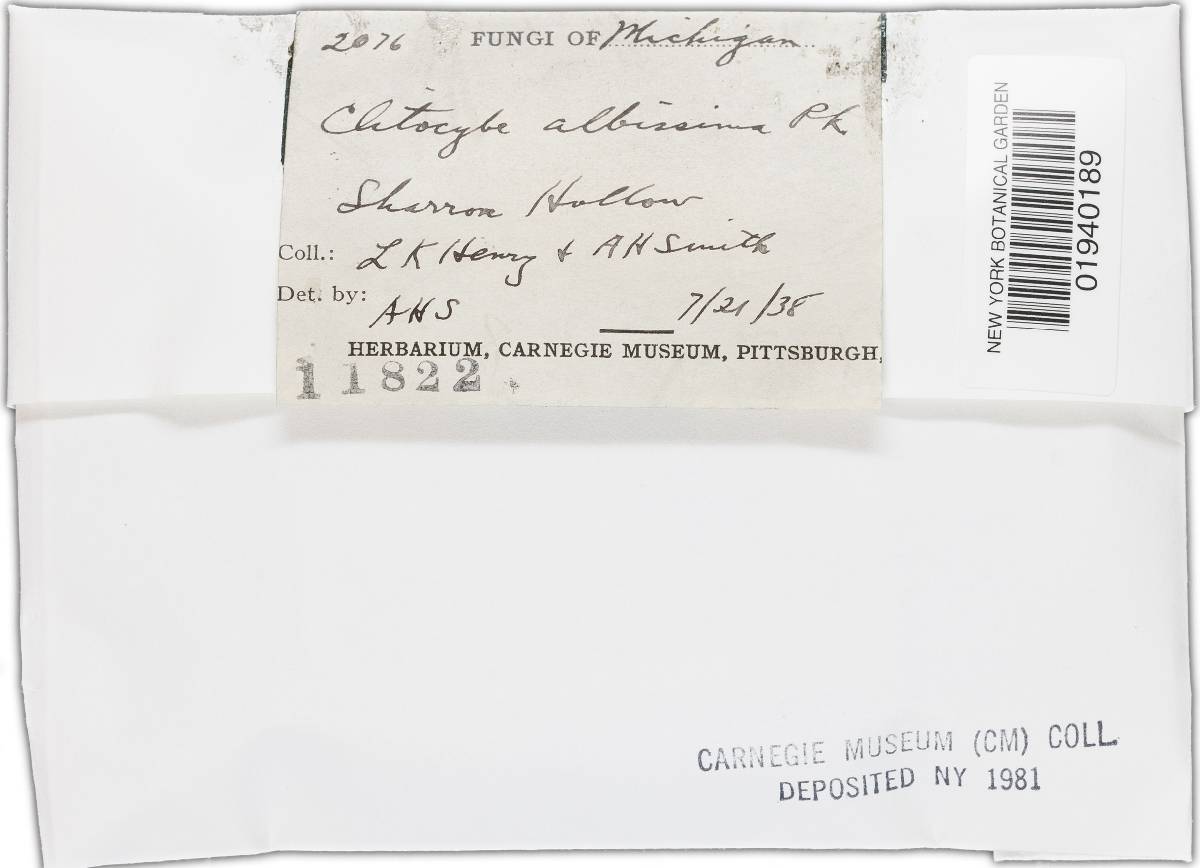 2076 FUNGI OF Michigan
Clitocybe albissima Pk
Sharron Hollow
Coll.: L K Henry + A H Smith
Det. by: A H S 7/21/38
HERBARIUM, CARNEGIE MUSEUM, PITTSBURGH,
11822
NEW YORK BOTANICAL GARDEN
01940189
CARNEGIE MUSEUM (CM) COLL.
DEPOSITED NY 1981